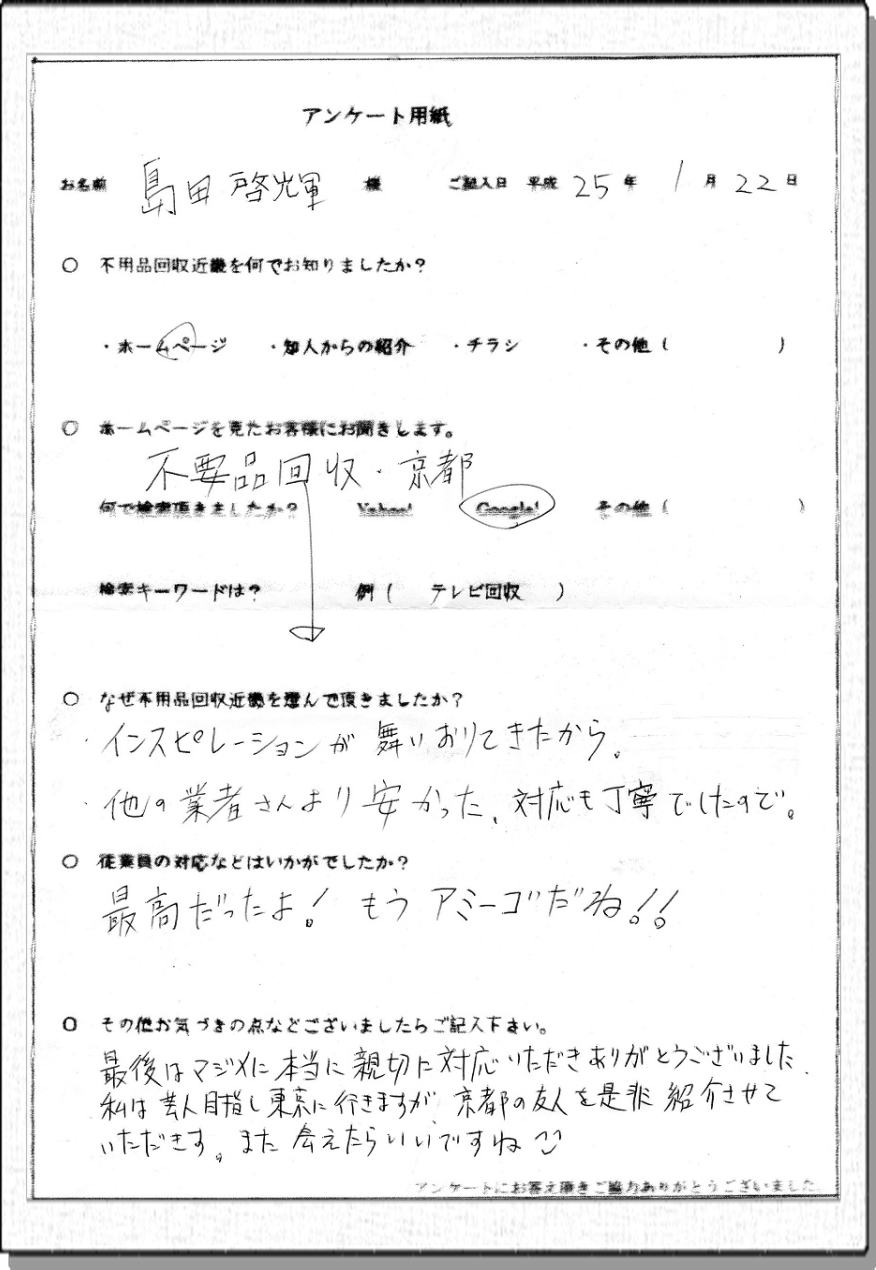 アンケート用紙
お名前 島田 啓輝 様 ご記入日 平成 25 年 1 月 22 日
○ 不用品回収近畿を何でお知りましたか?
・ホームページ ・知人からの紹介 ・チラシ ・その他 ( )
○ ホームページを見たお客様にお聞きします。
不要品回収・京都
何で検索頂きましたか? Yahoo! Google! その他 ( )
検索キーワードは? 例 ( テレビ回収 )
○ なぜ不用品回収近畿を選んで頂きましたか?
・インスピレーションが 舞いおりてきたから。
・他の業者さんより安かった、対応も丁寧でしたので。
○ 従業員の対応などはいかがでしたか?
最高だったよ! もう アミーゴだね!!
○ その他お気づきの点などございましたらご記入下さい。
最後はマジメに本当に親切に対応いただきありがとうございました、
私は芸人目指し東京に行きますが、京都の友人を是非紹介させて
いただきます。また会えたらいいですね
アンケートにお答え頂きご協力ありがとうございました。